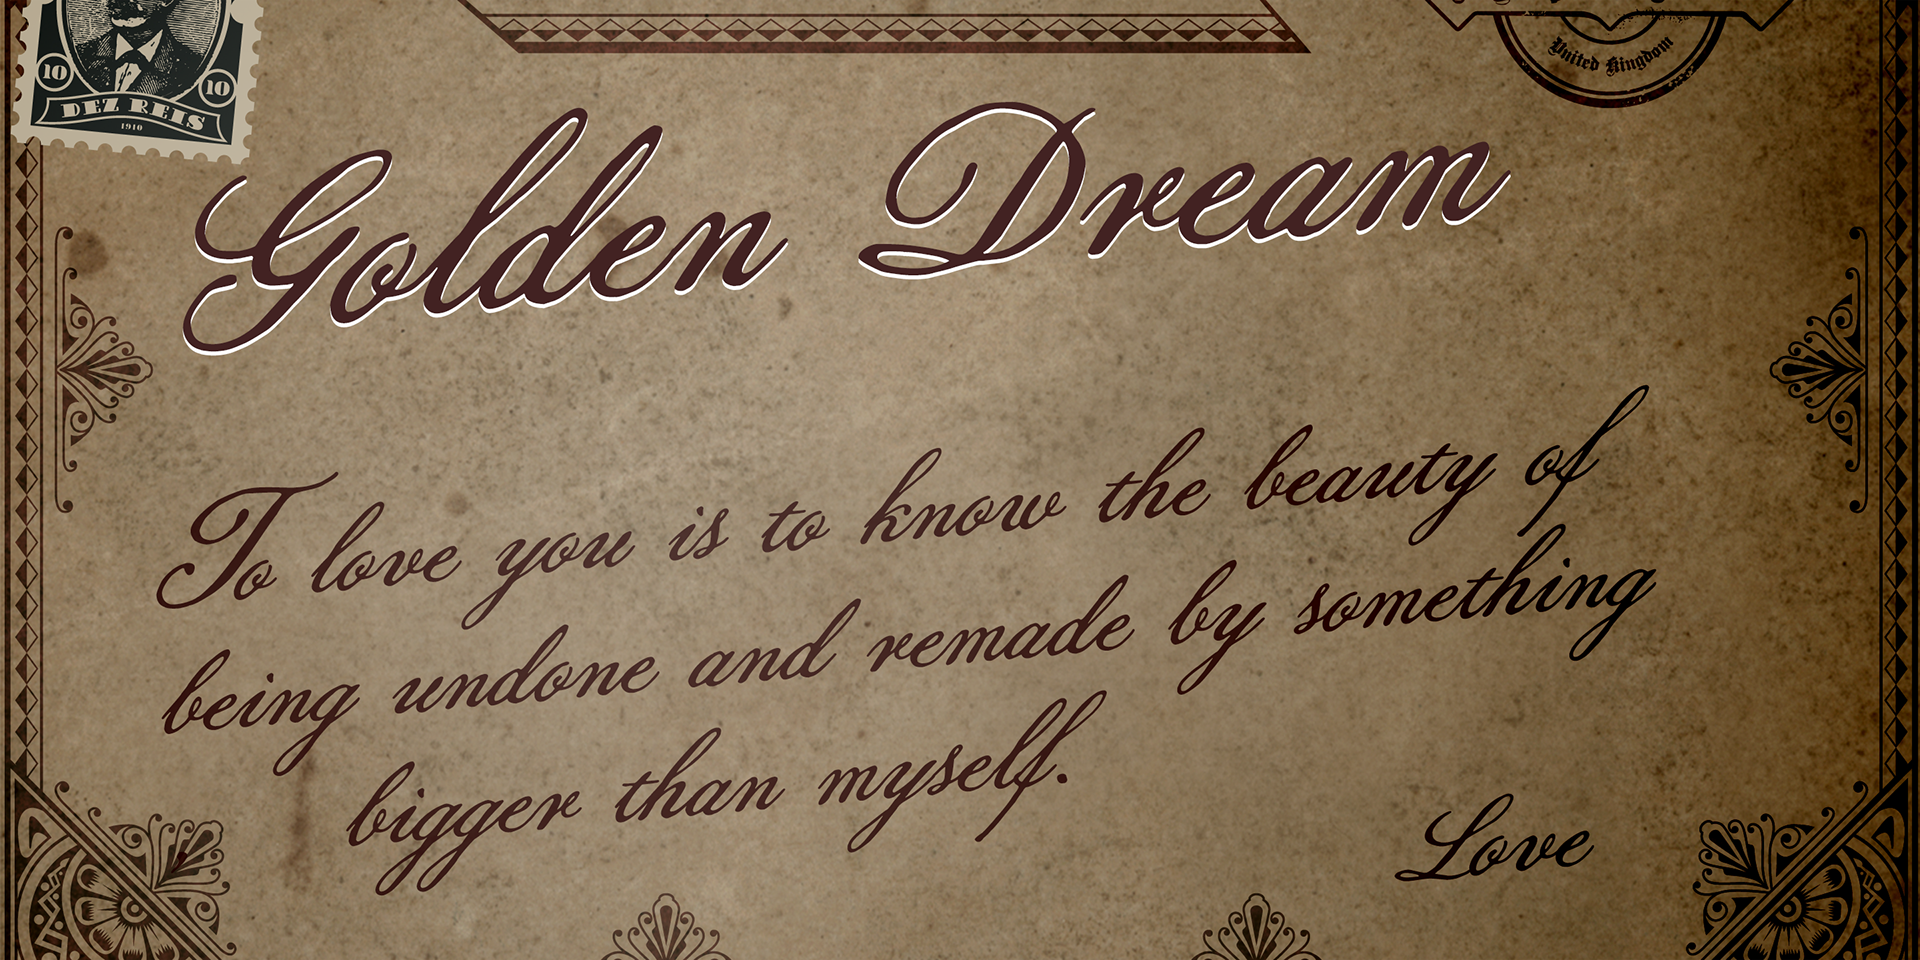 10 10
DEZ REIS
1910
United Kingdom
Golden Dream
To love you is to know the beauty of
being undone and remade by something
bigger than myself.
Love